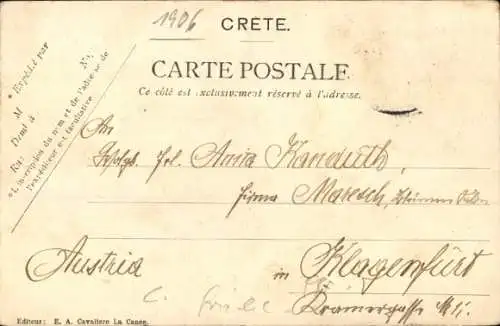 1906
CRÈTE.
CARTE POSTALE
Ce côté est exclusivement réservé à l'adresse.
* Expédié par
M
No.
Demt à
Rue
* L'inscription du nom et de l'adresse de
l'expéditeur est facultative
An
Anna Kanduth,
Firma Maresch,
Austria
in Klagenfurt
Kramergasse No 11.
Editeur: E. A. Cavaliero La Canée.